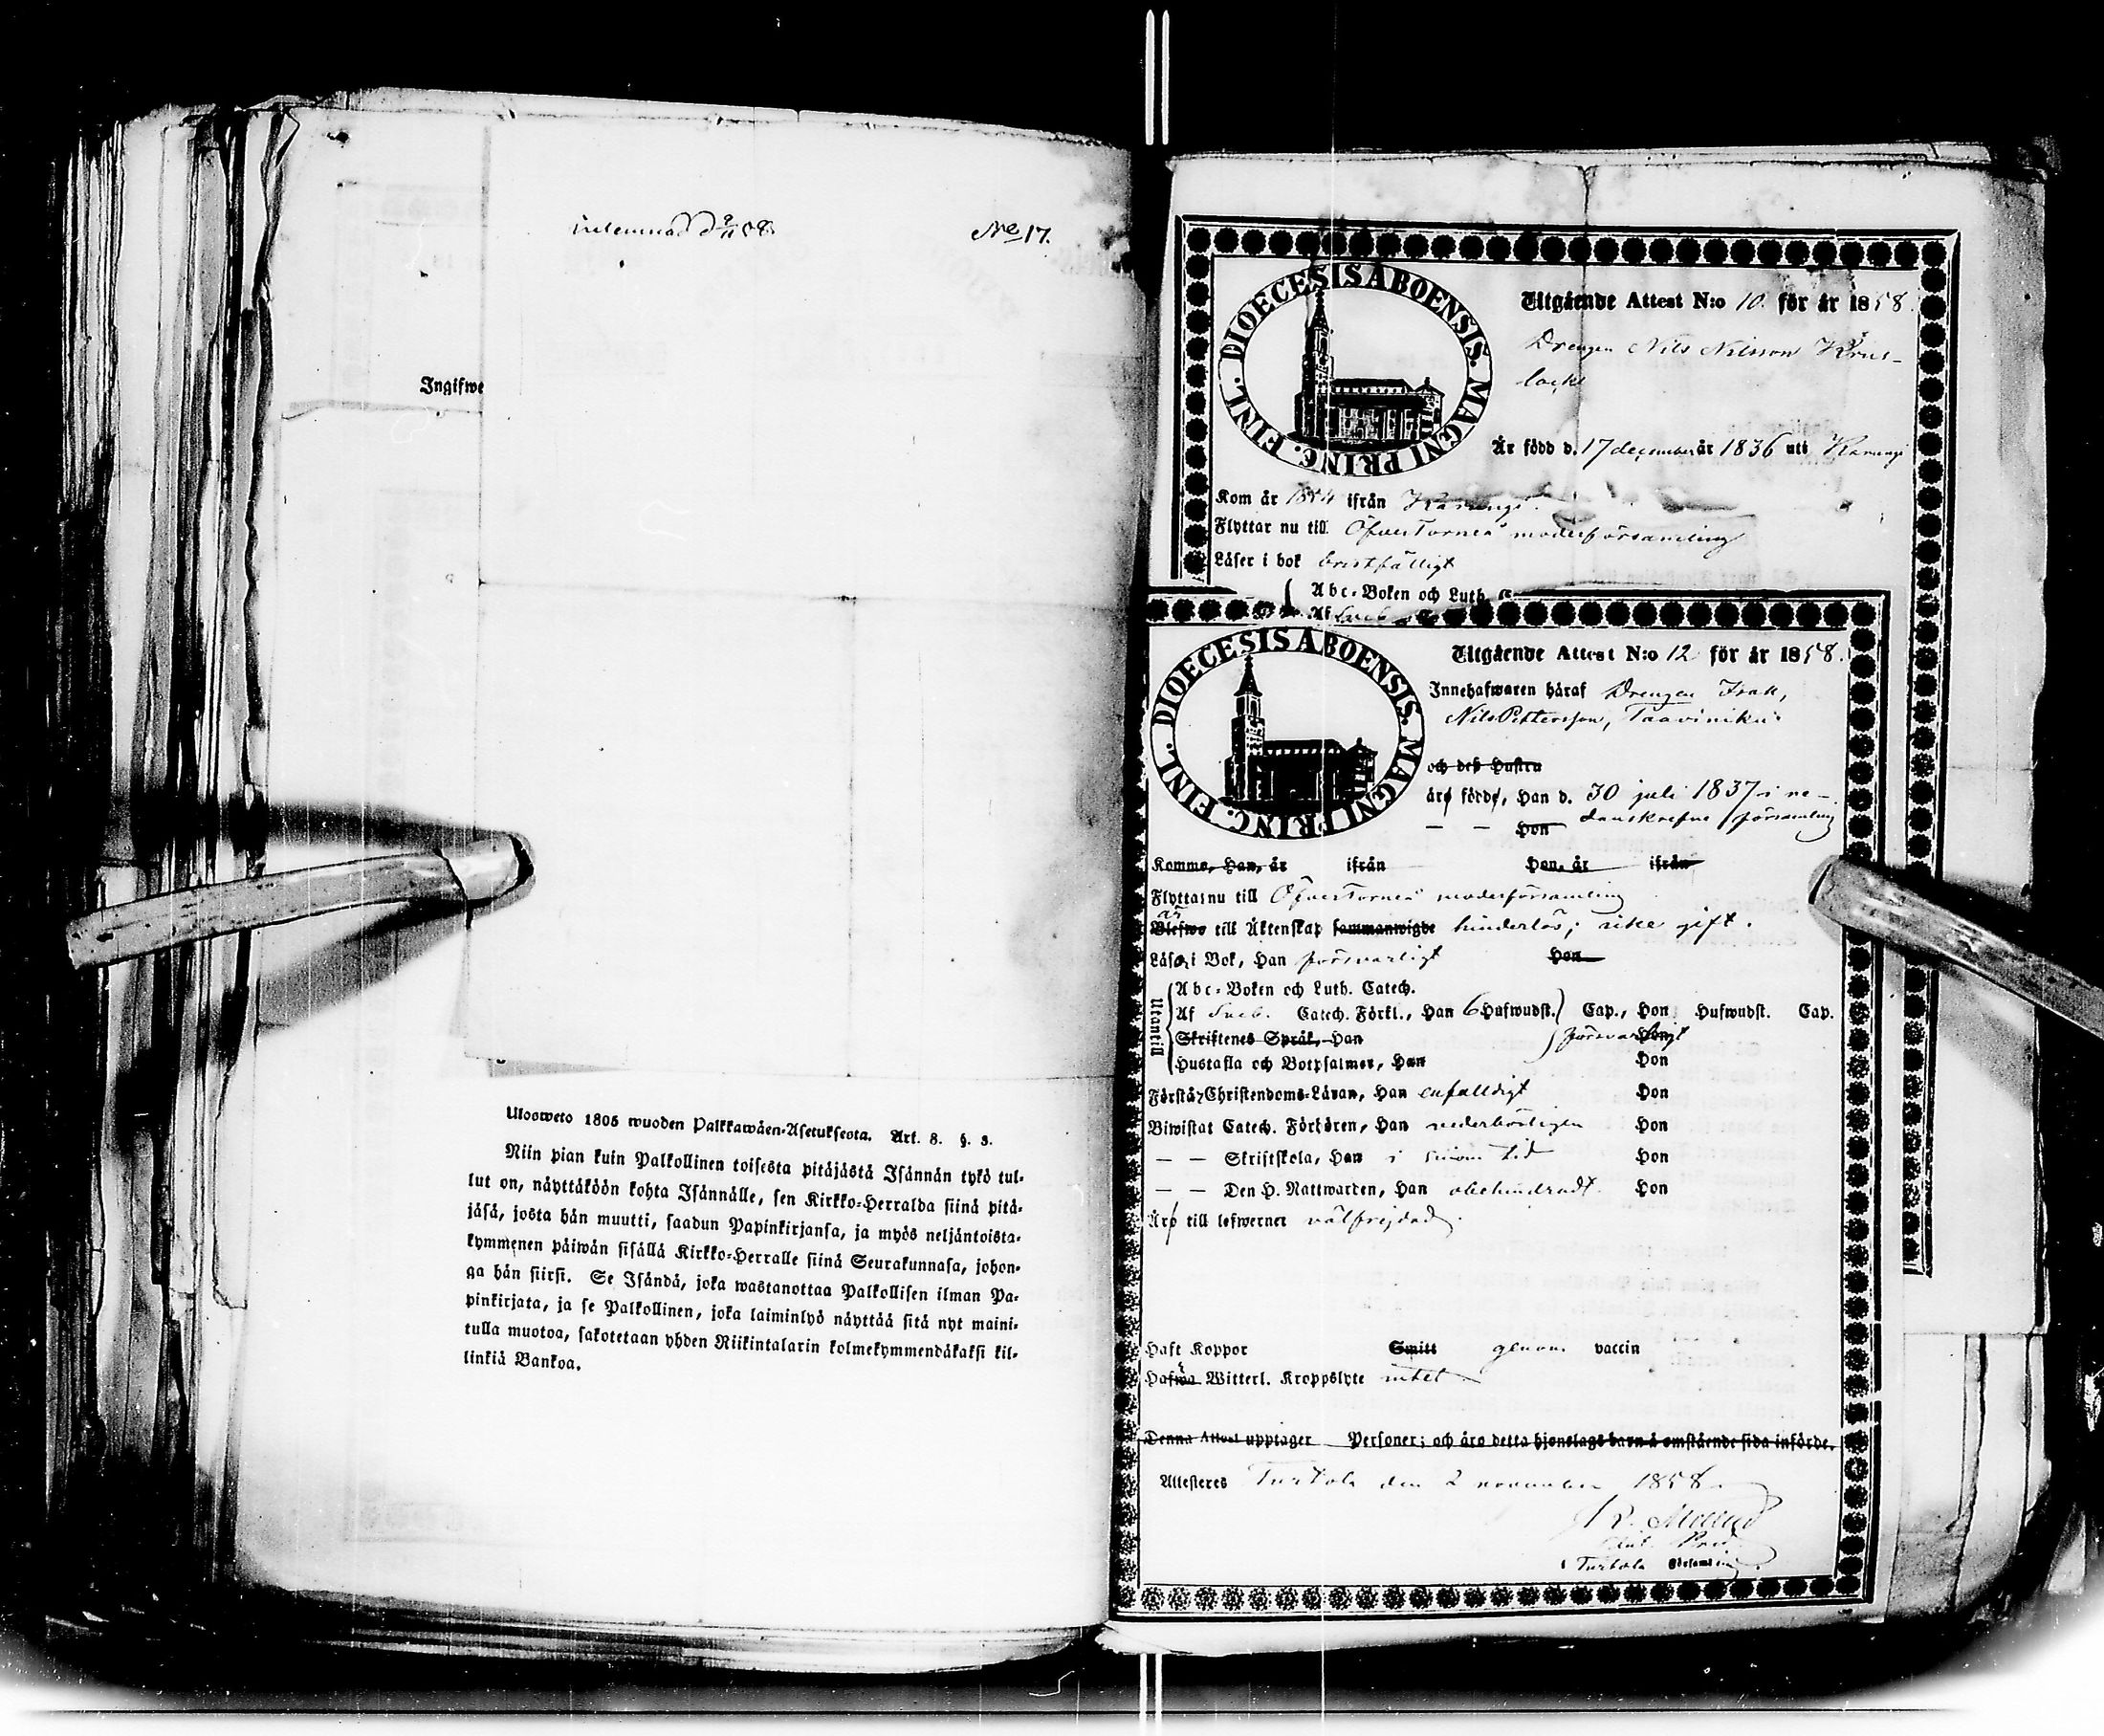 inlemnad d 9/11 58.
No 17.
Ingifwe
Ulosweto 1805 wuoden Palkkawäen-Asetuksesta. Art. 8. §. 3.
Niin pian kuin Palkollinen toisesta pitäjästä Isännän tykö tul-
lut on, näyttäköön kohta Isännälle, sen Kirkko-Herralda siinä pitä-
jäsä, josta hän muutti, saadun Papinkirjansa, ja myös neljäntoista-
kymmenen päiwän sisällä Kirkko-Herralle siinä Seurakunnasa, johon-
ga hän siirsi. Se Isändä, joka wastanottaa Palkollisen ilman Pa-
pinkirjata, ja se Palkollinen, joka laiminlyö näyttää sitä nyt maini-
tulla muotoa, sakotetaan yhden Riikintalarin kolmekymmendäkaksi kil-
linkiä Bankoa.
DIOECESIS ABOENSIS. MAGNI PRINC. FINL.
Utgående Attest N:o 10. för år 1858.
Drengen Nils Nilsson
Är född d. 17 december år 1836 uti Karungi
Kom år 1854 ifrån Karungi.
Flyttar nu till Öfvertorneå moderförsamling
Läser i bok bristfälligt
Abc-Boken och Luth.
Af Sveb.
DIOECESIS ABOENSIS. MAGNI PRINC. FINL.
Utgående Attest N:o 12 för år 1858.
Innehafwaren häraf Drengen Isak,
Nils Pettersson, Taaviniku
och deß Hustru
äro född, Han d. 30 juli 1837 i ne-
— — Hon danskrefne församling
Kommo, Han, år ifrån Hon, år ifrån
Flyttar nu till Öfvertorneå moderförsamling
är
Blefwo till Äktenskap sammanwigde hinderlös; icke gift.
Läser i Bok, Han försvarligt Hon
Utantill
Abc-Boken och Luth. Catech.
Af Sveb. Catech. Förkl., Han 6 Hufwudst. Cap., Hon Hufwudst. Cap.
Skriftenes Språk, Han försvarligt Hon
Hustafla och Botpsalmer, Han Hon
Förstår Christendoms-Läran, Han enfalldigt Hon
Biwistat Catech. Förhören, Han vederbörligen Hon
— — Skriftskola, Han i sinom tid Hon
— — Den H. Nattwarden, Han obehindradt. Hon
Äro till lefwernet välfrejdad.
Haft Koppor Smitt genom vaccin
Hafwa Witterl. Kroppslyte intet
Denna Attest upptager Personer; och äro detta hjonelags barn å omstående sida införde.
Attesteres Turtola den 2 november 1858.
i Turtola Församling.